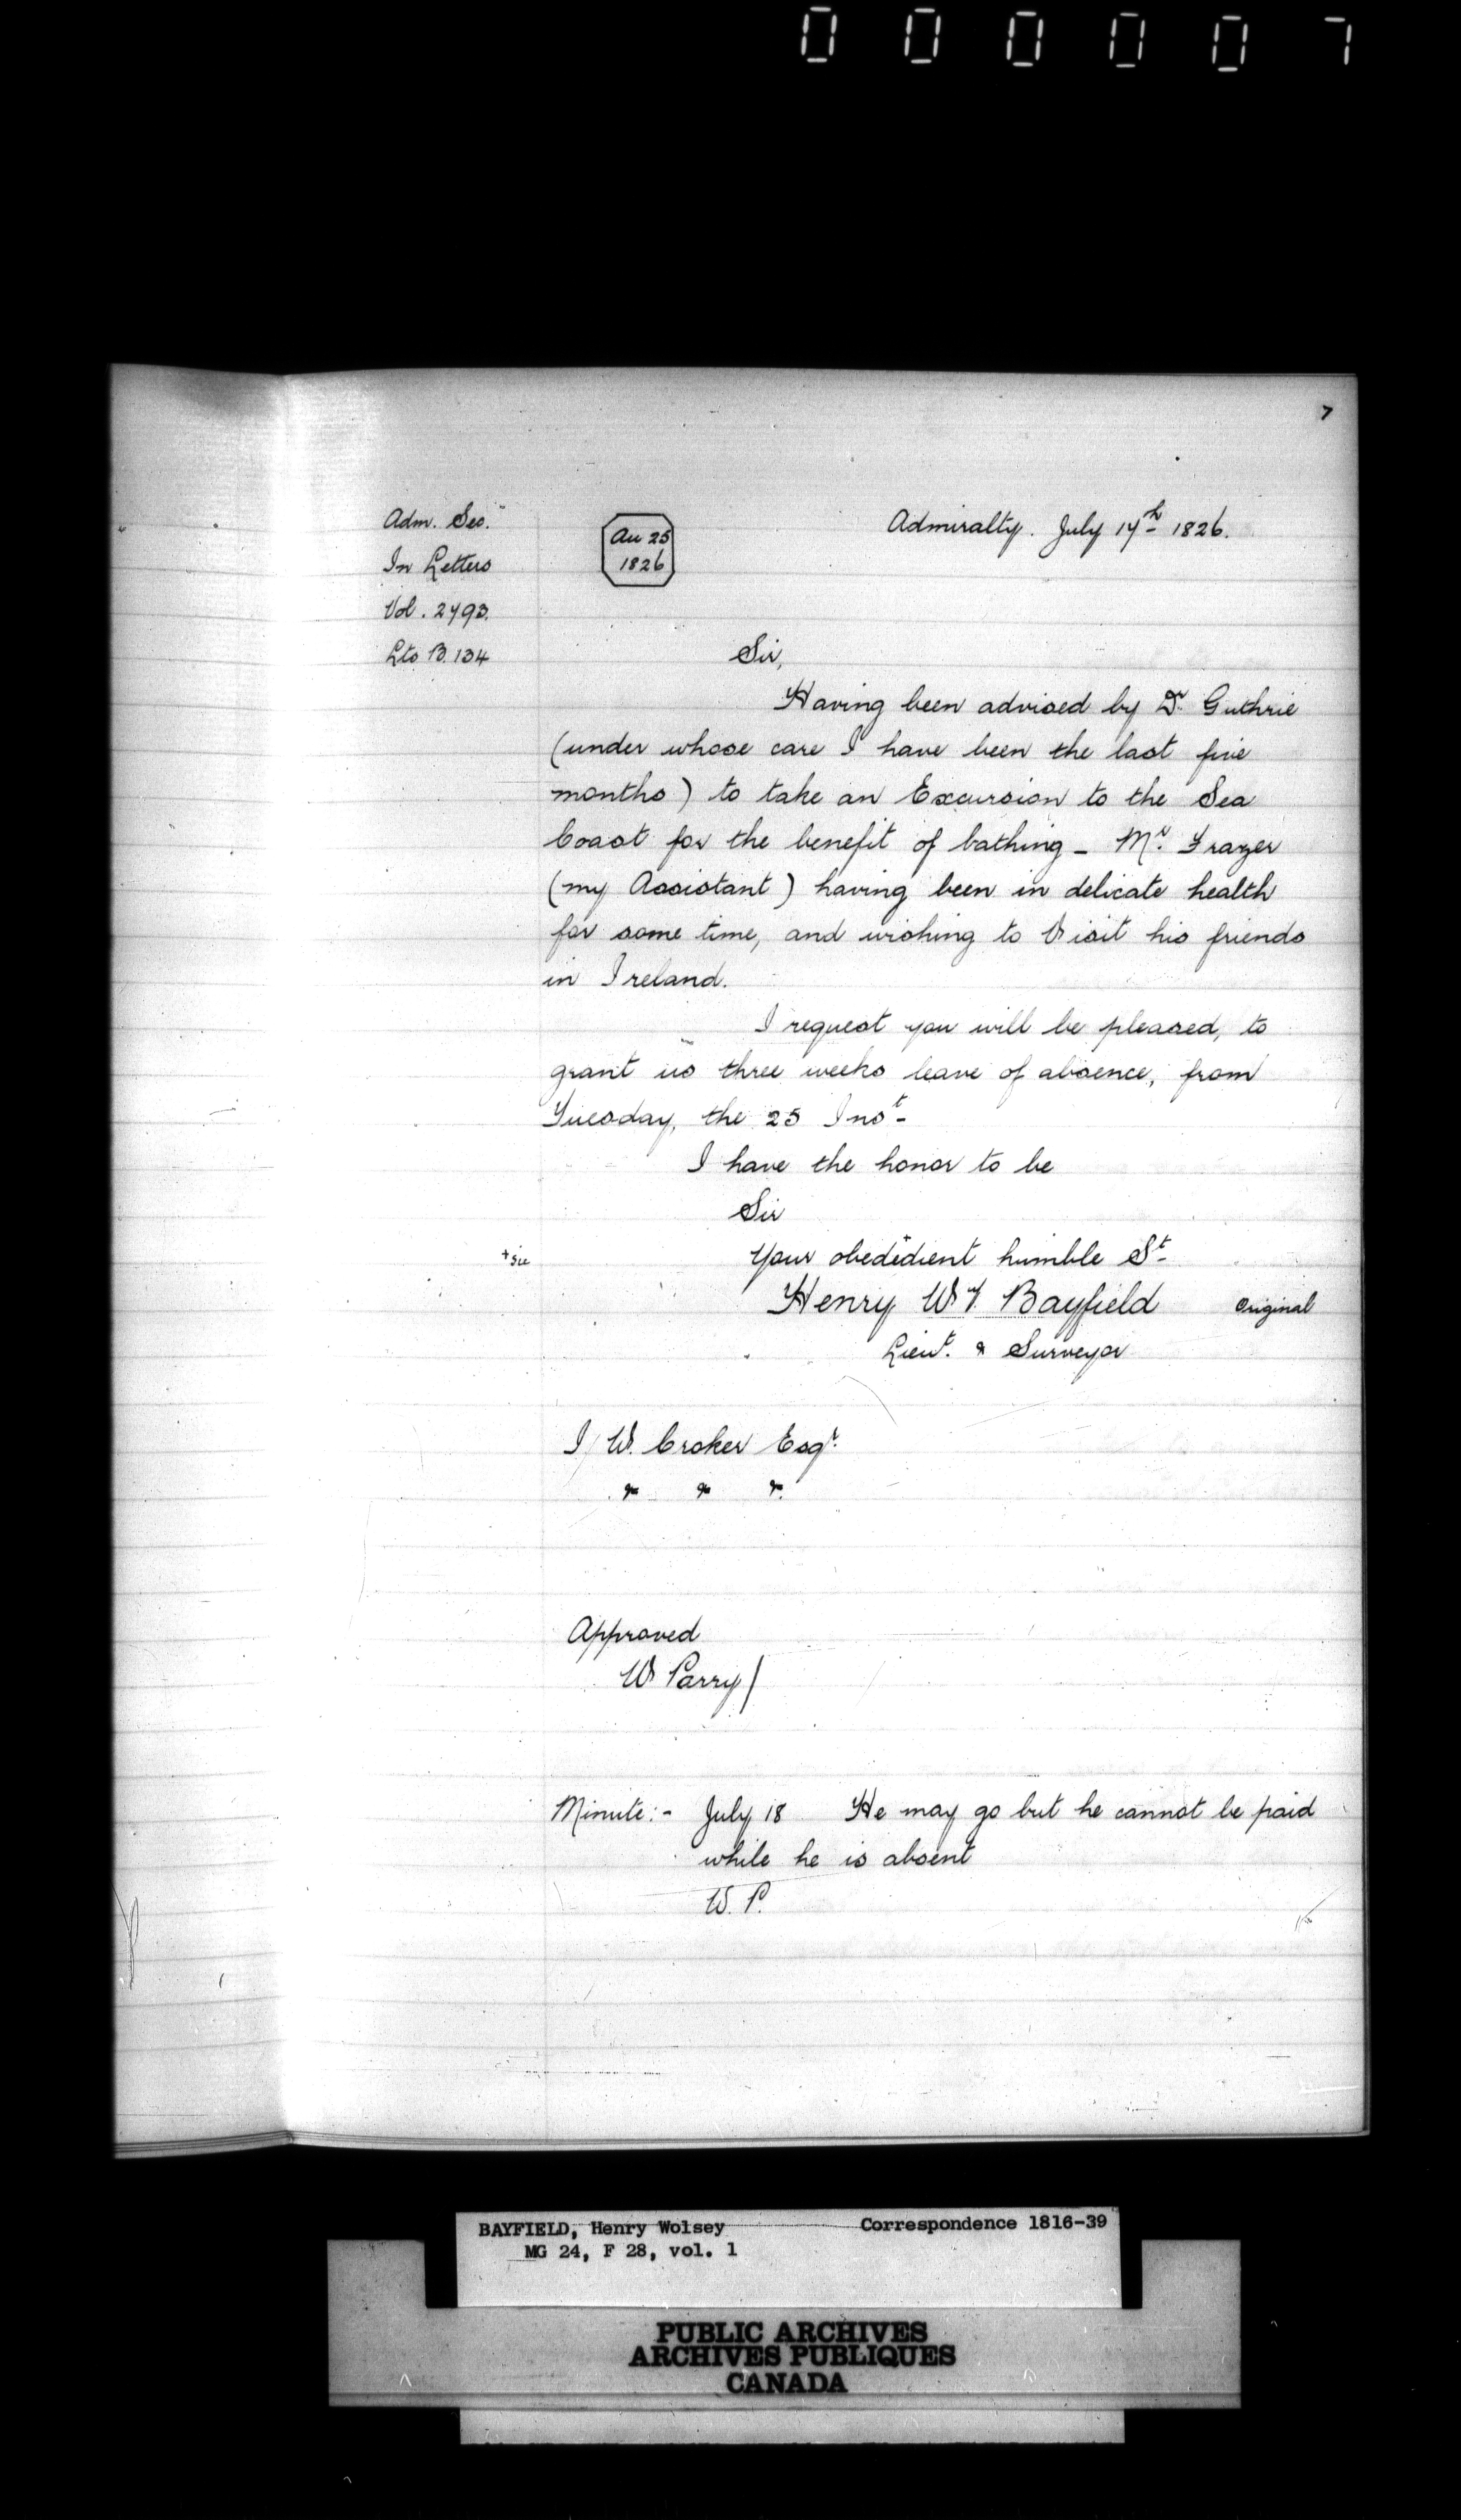 000007
7
Adm. Sec.
In Letters
Vol. 2793.
Lts B. 134
Au 25
1826
Admiralty. July 17th 1826.
Sir,
Having been advised by Dr. Guthrie
(under whose care I have been the last five
months) to take an Excursion to the Sea
Coast for the benefit of bathing - Mr. Frazer
(my Assistant) having been in delicate health
for some time, and wishing to Visit his friends
in Ireland.
I request you will be pleased, to
grant us three weeks leave of absence, from
Tuesday, the 25 Inst-
I have the honor to be
Sir
+sic
Your obededient humble St-
Henry W Bayfield
Original
Lieut. & Surveyor
I W. Croker Esqr.
& & &.
Approved
W Parry/
Minute:- July 18 He may go but he cannot be paid
while he is absent
W. P.
BAYFIELD, Henry Wolsey Correspondence 1816-39
MG 24, F 28, vol. 1
PUBLIC ARCHIVES
ARCHIVES PUBLIQUES
CANADA